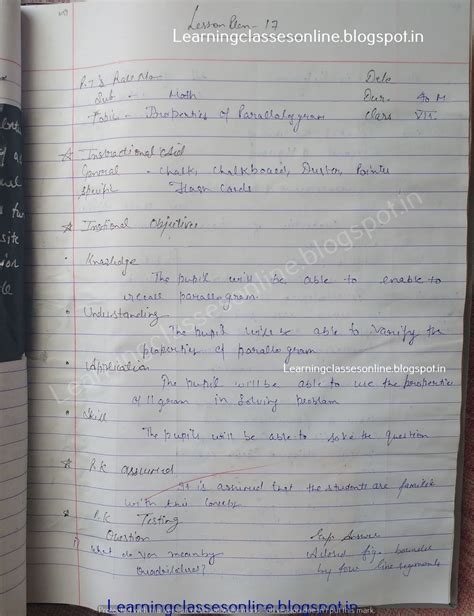 Lesson Plan - 17
Learningclassesonline.blogspot.in
P.T's Roll No Date
Sub - Math Dur. 40 M
Topic - Properties of Parallelogram Class VIII
Instructional Aid
General - Chalk, Chalkboard, Duster, Pointer
Specific Flash Cards
Objective
Knowledge
The pupil will be able to enable to
recall parallogram.
Understanding
The pupil will be able to the
properties of parallogram
Application
Learningclassesonline.blogspot.in
The pupil will be able to use the properties
of llgram in Solving problem
Skill
The pupil will be able to solve the question
P.K assumed
It is assumed that the students are familier
with this
P.K Testing
Question Exp Answer
i) What do you mean by closed fig. bounded
Quadrilateral? by four line segments
Learningclassesonline.blogspot.in
Learningclassesonline.blogspot.in